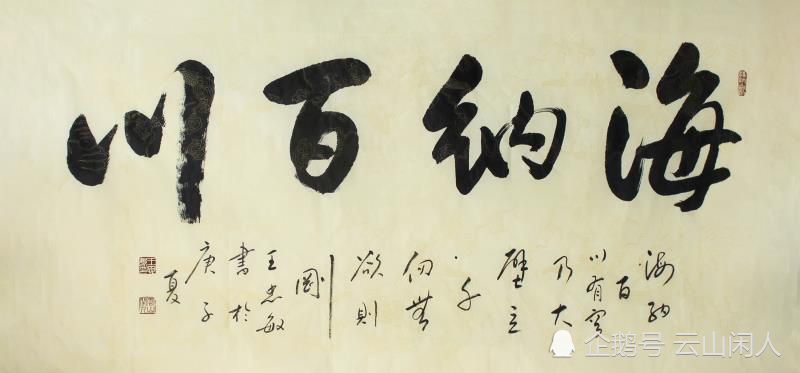 海納百川
海納
百
川有容
乃大
壁立
千
仞無
欲則
剛
王忠敏
書於
庚子
夏
企鹅号 云山闲人